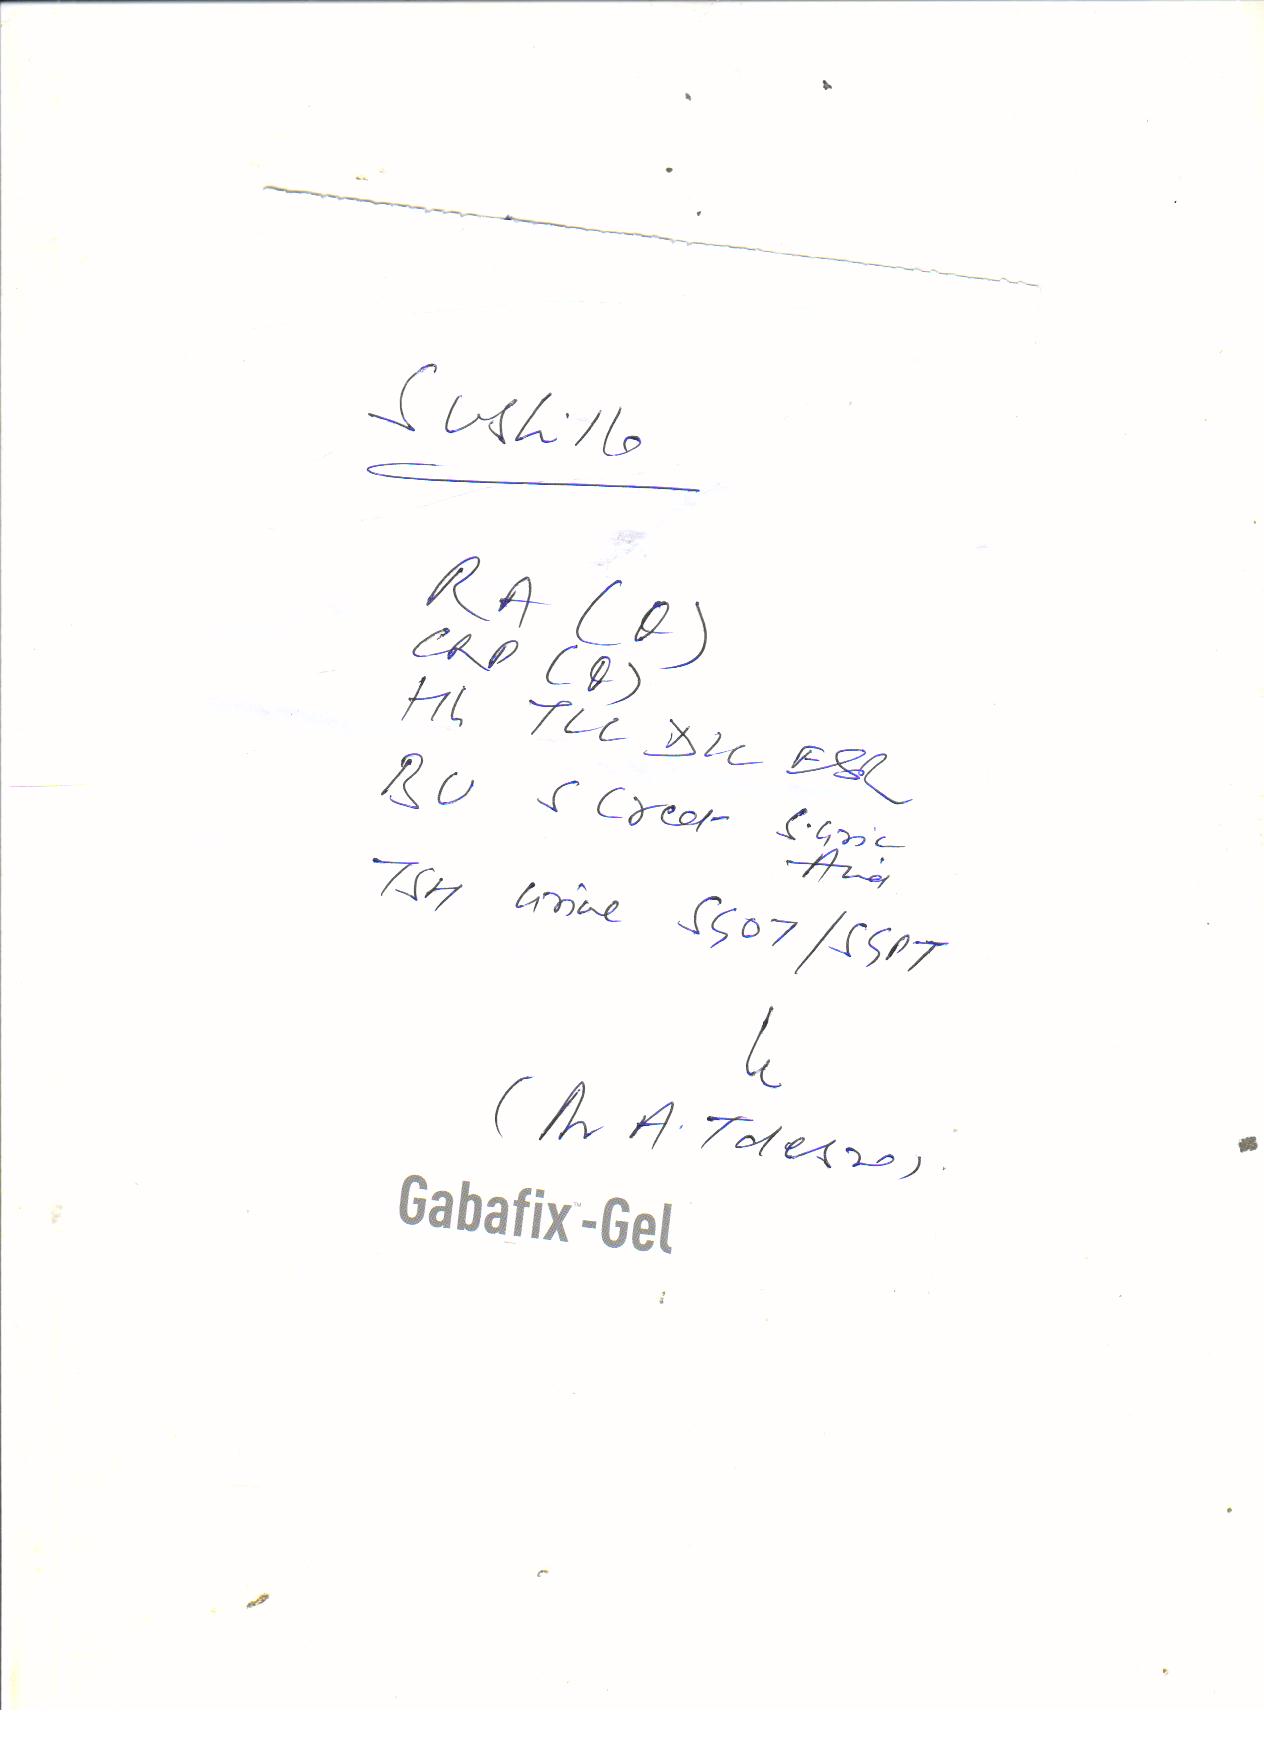 Sushila
RA (Q)
CRP (Q)
Hb TLC DLC ESR
BU S Creat S. Uric
Acid
TSH Urine SGOT/SGPT
(Dr A.
Gabafix™-Gel